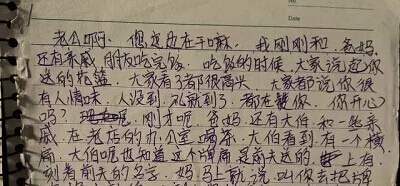 No
Date
老公啊：你现在在干嘛，我刚刚和爸妈，
还有亲戚朋友吃完饭，吃饭的时候，大家说起你
送的花篮，大家看了都很高兴，大家都说你很
有人情味，人没到，礼就到了，都在赞你，你开心
吗？刚才呢，爸妈还有大伯和一些亲
戚在老店的办公室喝茶，大伯看到有一个横
大伯呢也知道这个牌匾是前夫送的，上有
刻着前夫的名字，妈马上就说叫你去把牌